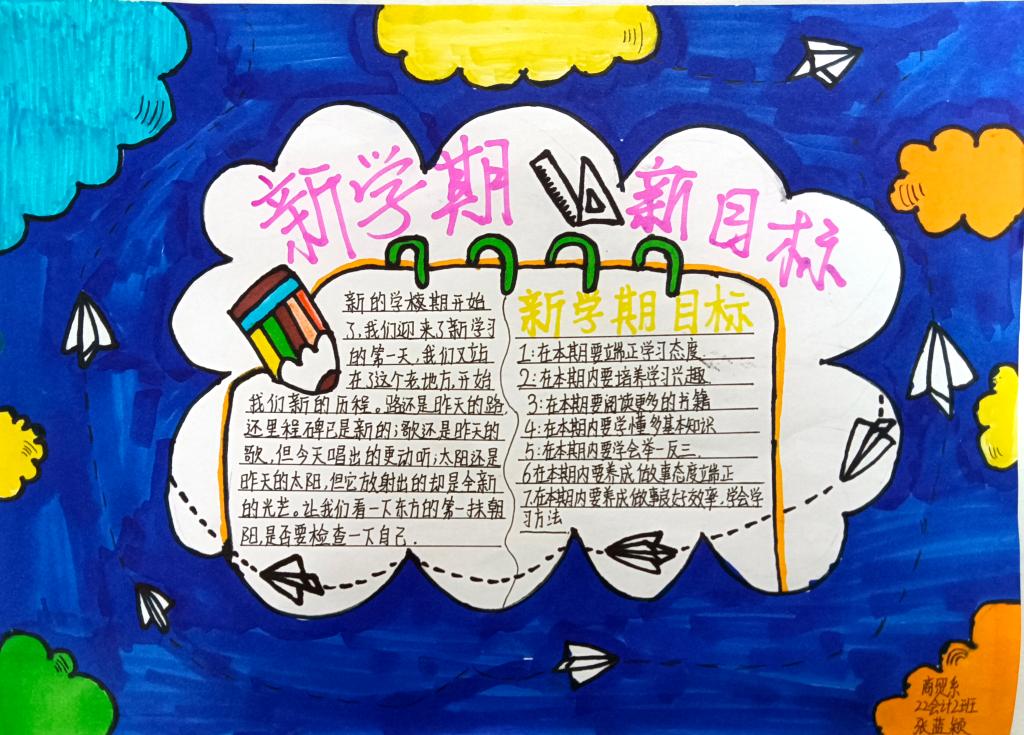 新学期 新目标
新的学校期开始
了,我们迎来了新学习
的第一天,我们又站
在了这个老地方,开始
我们新的历程。路还是昨天的路
还里程碑已是新的;歌还是昨天的
歌,但今天唱出的更动听;太阳还是
昨天的太阳,但它放射出的却是全新
的光芒。让我们看一下东方的第一抹朝
阳,是否要检查一下自己.
新学期目标
1:在本期要立端正学习态度.
2:在本期内要培养学习兴趣.
3:在本期要阅读更多的书籍
4:在本期内要学懂多基本知识
5:在本期内要学会举一反三.
6在本期内要养成做事态度端正
7.在本期内要养成做事良好效率,学会学
习方法
商贸系
22会计2班
张蓝颖